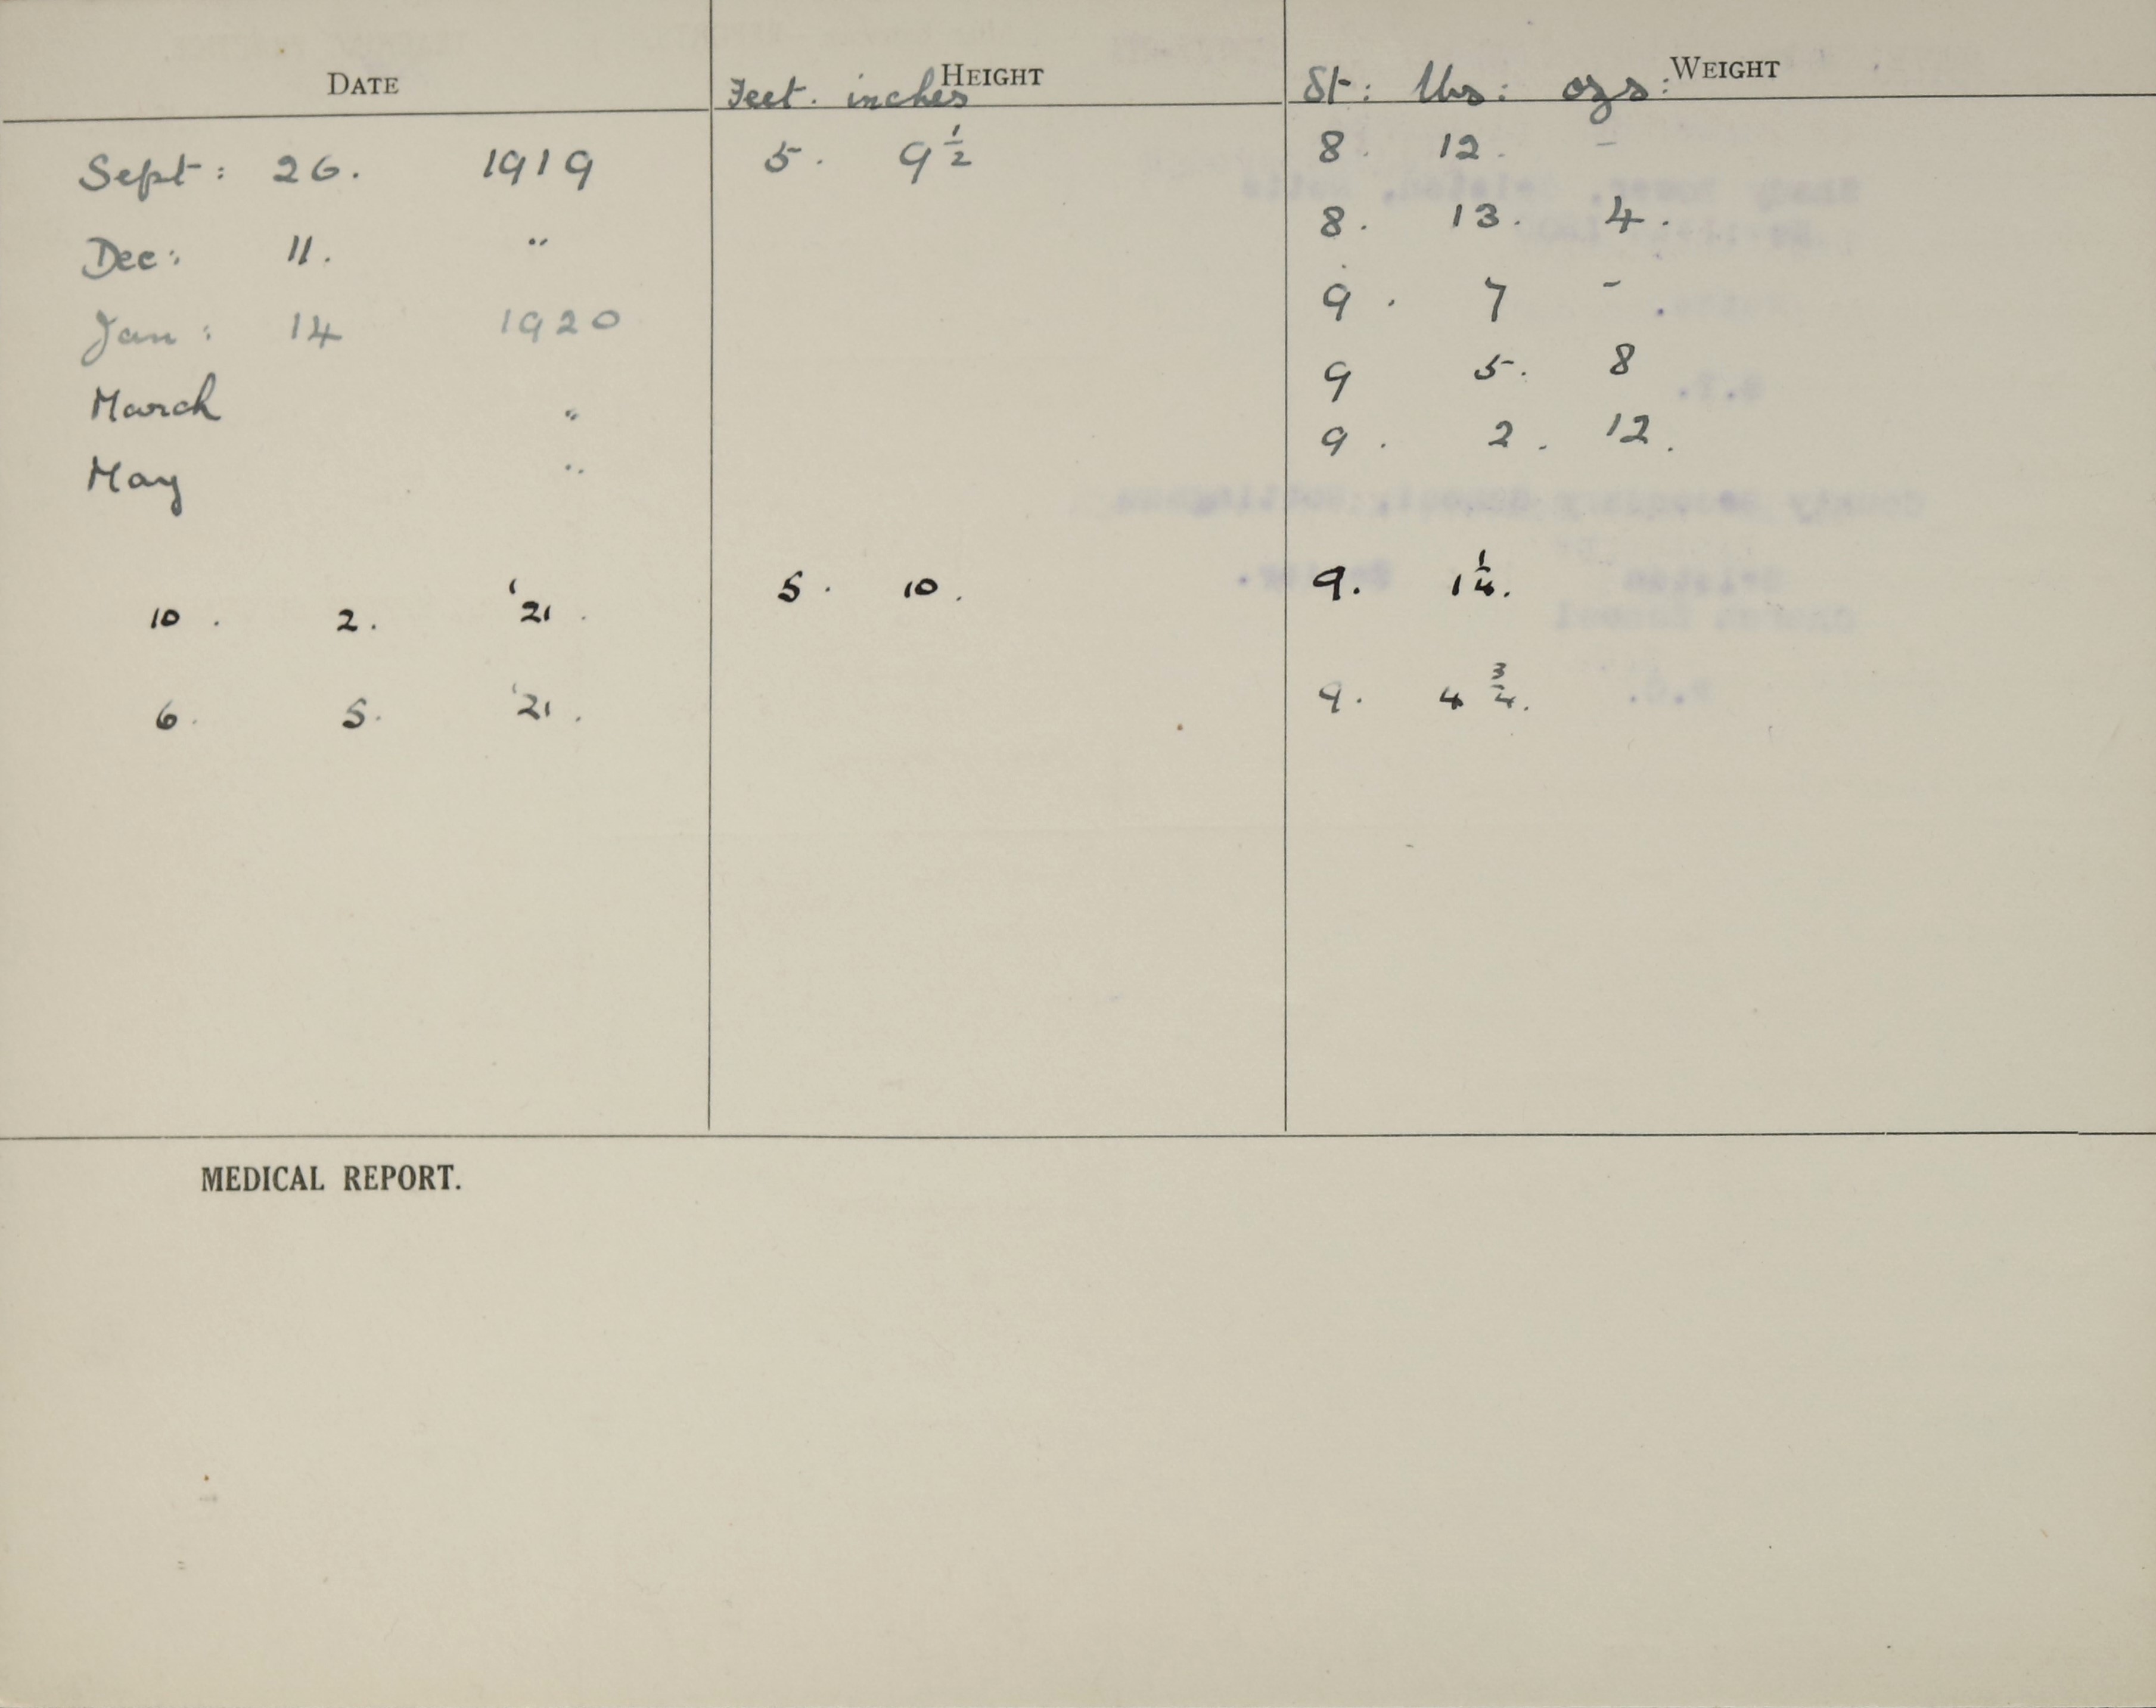 DATE HEIGHT WEIGHT
Feet. inches St: lbs: ozs:
Sept: 26. 1919 5. 9½ 8. 12. -
Dec: 11. " 8. 13. 4.
Jan: 14 1920 9. 7 -
March " 9 5. 8
May " 9. 2. 12.
10. 2. '21. 5. 10. 9. 1¼.
6. 5. '21. 9. 4¾.
MEDICAL REPORT.